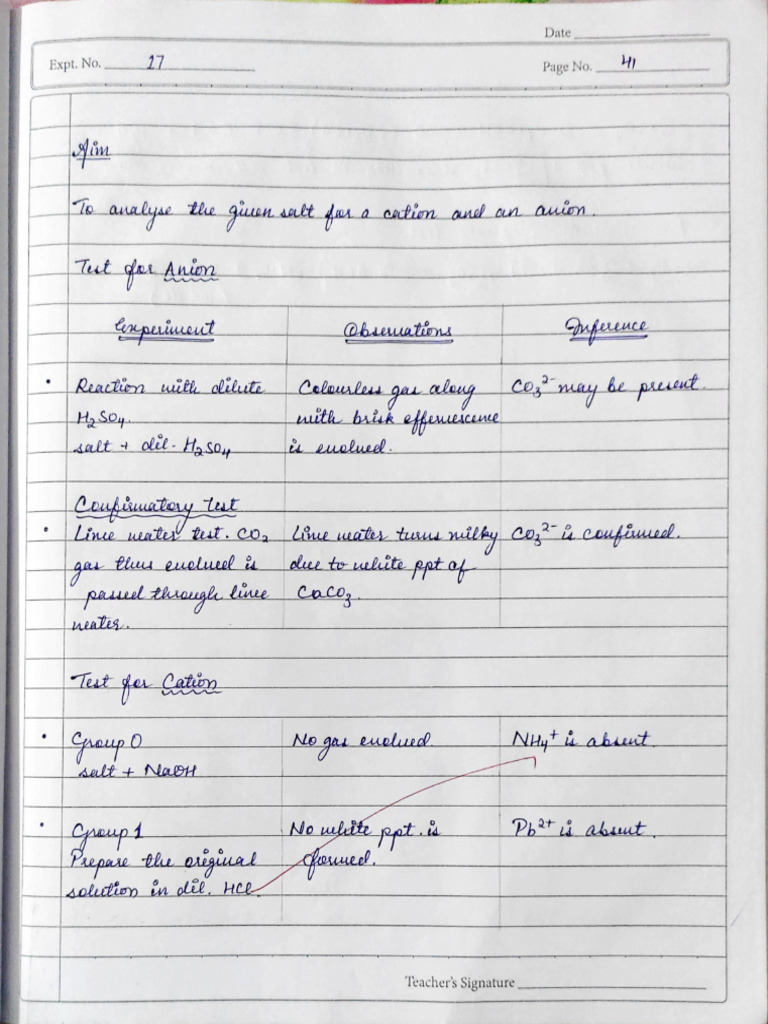 Date
Expt. No. 17
Page No. 41
Aim
To analyse the given salt for a cation and an anion.
Test for Anion
Experiment Observations Inference
• Reaction with dilute Colourless gas along CO₃²⁻ may be present.
H₂SO₄. with brisk effervescence
salt + dil. H₂SO₄ is evolved.
Confirmatory Test
• Lime water test. CO₂ Lime water turns milky CO₃²⁻ is confirmed.
gas thus evolved is due to white ppt of
passed through lime CaCO₃.
water.
Test for Cation
• Group 0 No gas evolved NH₄⁺ is absent.
salt + NaOH
• Group 1 No white ppt. is Pb²⁺ is absent.
Prepare the original formed.
solution in dil. HCl.
Teacher's Signature